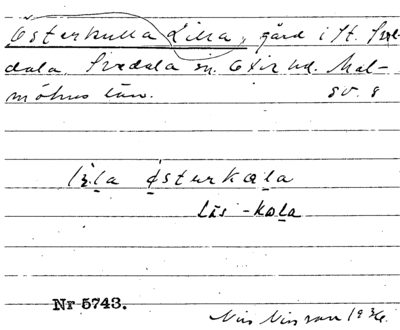 Österkulla Lilla, gård i St. Sve-
dala, Svedala sn. Oxie hd. Mal-
möhus län. sv. s
lila østurkœla
Läs -kœla
Nr 5743.
Nils Nilsson 1936.